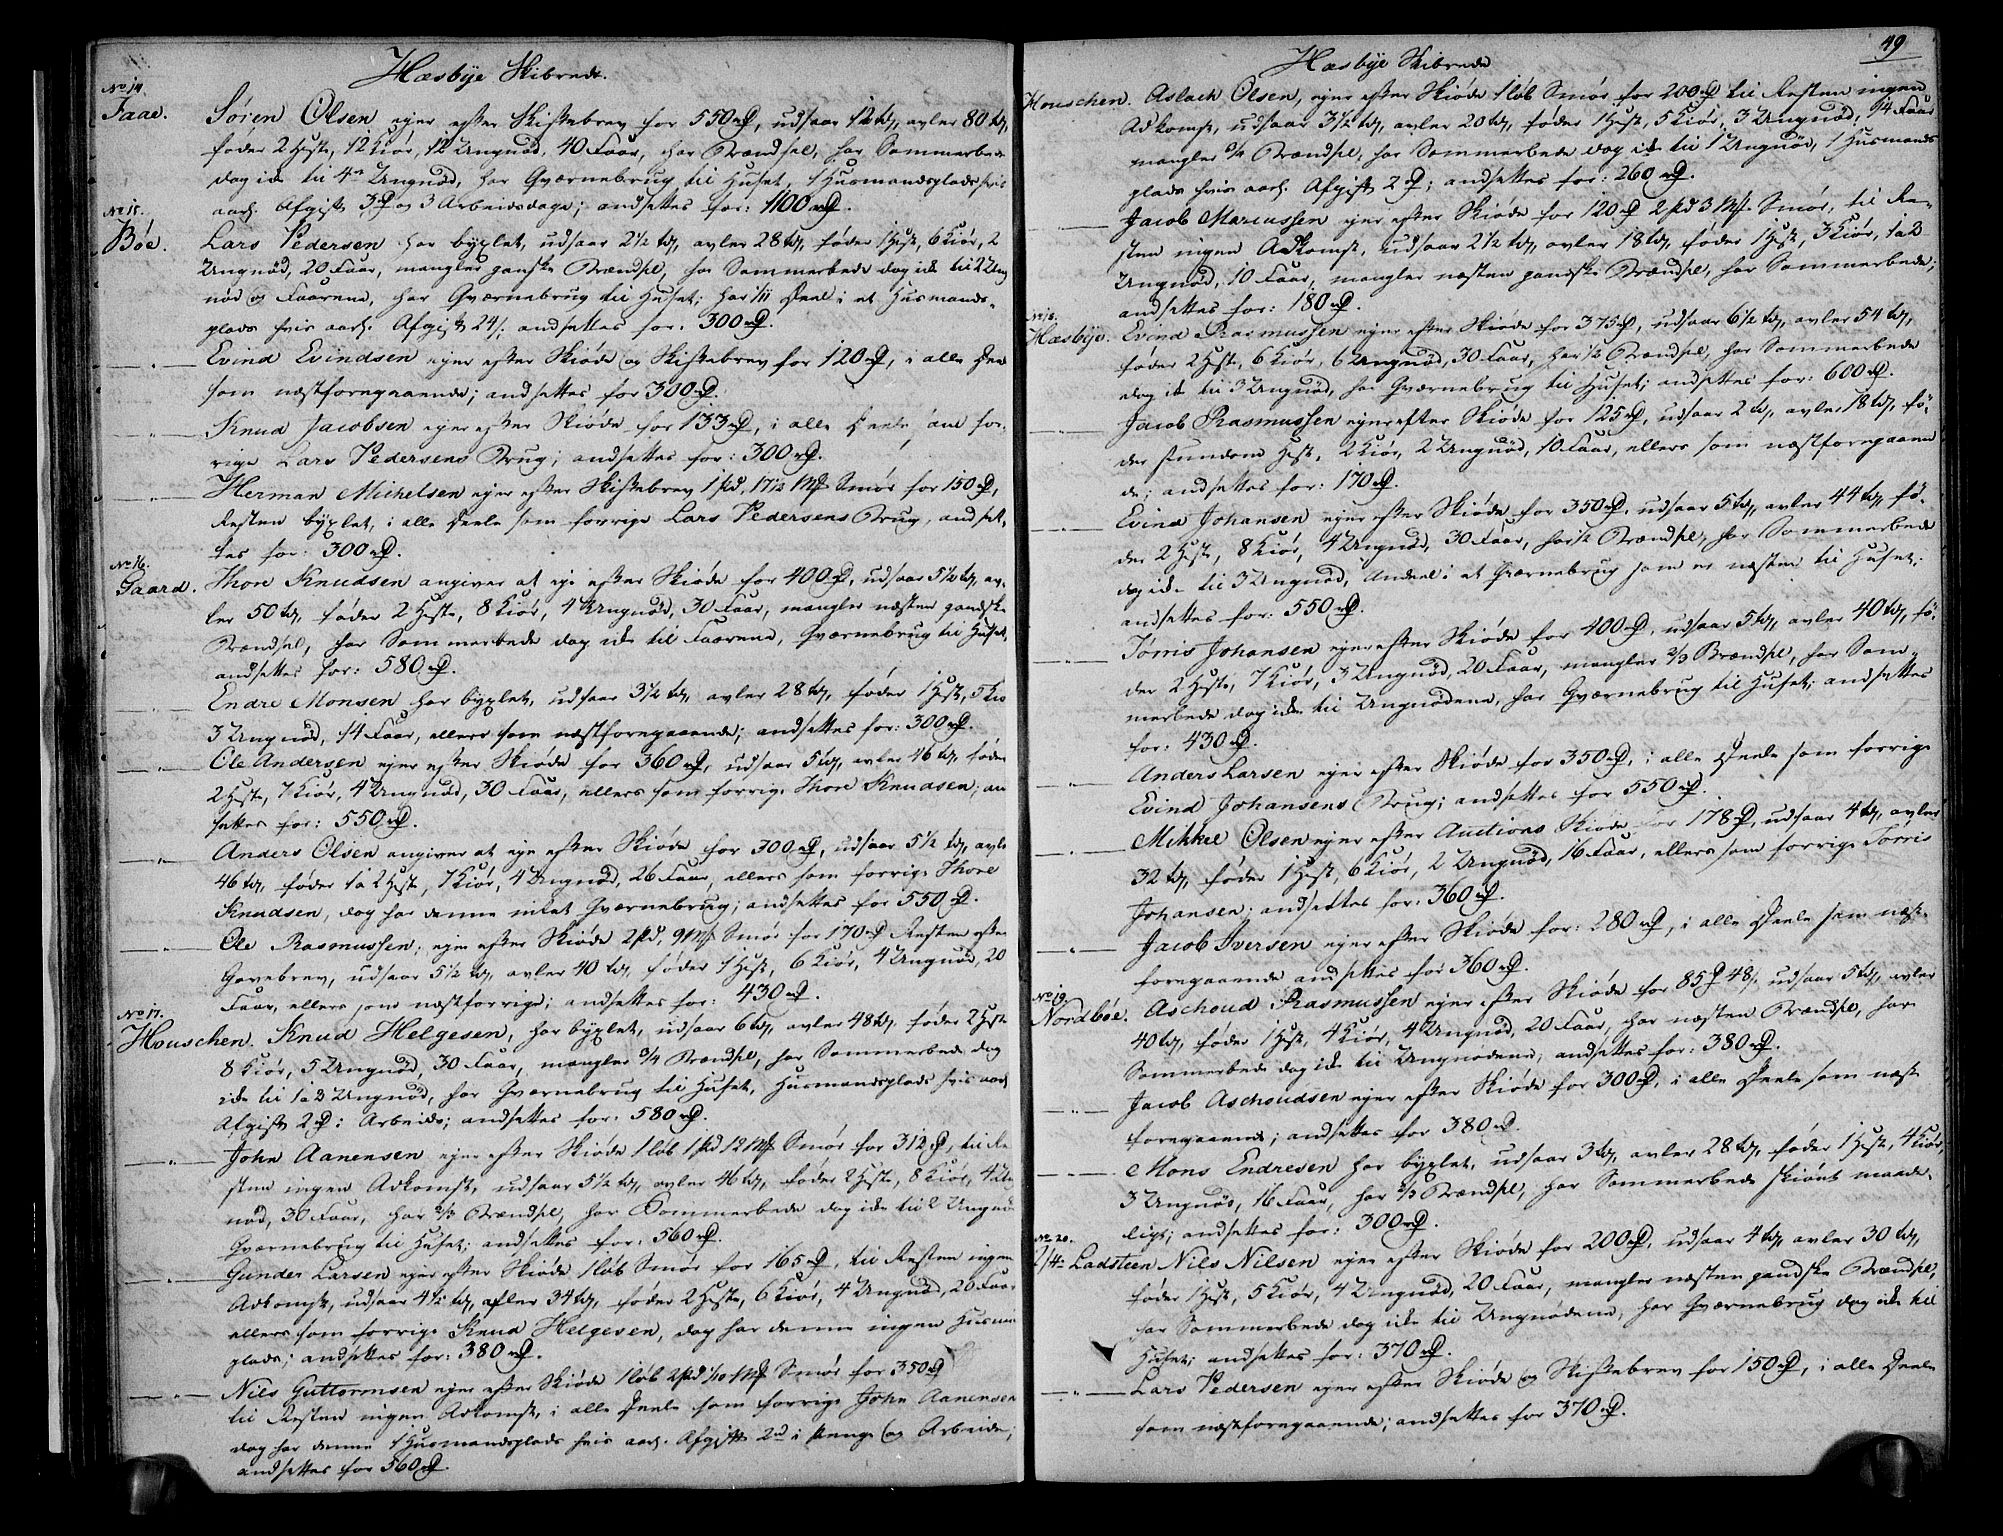 Hæsbye Skibrede.
No 14.
Faae. Søren Olsen ejer efter Skiftebrev for 550 rd, udsaar 12 td, avler 80 td,
føder 2 Heste, 12 Kiør, 12 Ungnød, 40 Faar, har Brændsel, har Sommerbede
dog ikke til 4re Ungnød, har Qværnebrug til Huset, 1 Husmandsplads hvis
aarl. Afgift 3 rd og 3 Arbeidsdage; andsættes for: 1100 rd.
No 15.
Bøe. Lars Pedersen har byxlet, udsaar 2½ td, avler 28 td, føder 1 Hest, 6 Kiør, 2
Ungnød, 20 Faar, mangler ganske Brændsel, har Sommerbede dog ikke til 2 Ung
nød og Faarene, har Qværnebrug til Huset; har 1/11 Deel i et Husmands-
plads hvis aarl. Afgift 24 s. andsættes for: 300 rd.
— " — Evind Evindsen ejer efter Skiøde og Skiftebrev for 120 rd, i alle Dele
som næstforegaaende; andsættes for 300 rd.
— " — Knud Jacobsen ejer efter Skiøde for 133 rd, i alle Deele som for-
rige Lars Pedersens Brug; andsættes for: 300 rd.
— " — Herman Michelsen ejer efter Skiftebrev 1 pd, 17½ Mk Smør for 150 rd,
Resten byxlet, i alle Deele som forrige Lars Pedersens Brug, andsæt-
tes for: 300 rd.
No 16.
Gaard. Thore Knudsen angiver at eje efter Skiøde for 400 rd, udsaar 5½ td, av-
ler 50 td, føder 2 Heste, 8 Kiør, 4 Ungnød, 30 Faar, mangler næsten gandske
Brændsel, har Sommerbede dog ikke til Faarene, Qværnebrug til Huset,
andsættes for: 580 rd.
— " — Endre Monsen har byxlet, udsaar 3½ td, avler 28 td, føder 1 Hest, 5 Kiør
3 Ungnød, 14 Faar, ellers som næstforegaaende; andsættes for: 300 rd.
— " — Ole Andersen ejer efter Skiøde for 360 rd, udsaar 5 td, avler 46 td, føder
2 Heste, 7 Kiør, 4 Ungnød, 30 Faar, ellers som forrige Thore Knudsen; an
sættes for: 550 rd.
— " — Anders Olsen angiver at eje efter Skiøde for 300 rd, udsaar 5½ td, avler
46 td, føder 1 a 2 Heste, 7 Kiør, 4 Ungnød, 26 Faar, ellers som forrige Thore
Knudsen, dog har denne intet Qværnebrug; andsættes for 550 rd.
— " — Ole Rasmussen, ejer efter Skiøde 2 pd, 9 Mk Smør for 170 rd Resten efter
Gavebrev, udsaar 5½ td, avler 40 td, føder 1 Hest, 6 Kiør, 4 Ungnød, 20
Faar, ellers som næstforrige; andsættes for: 430 rd.
No 17.
Houschen. Knud Helgesen, har byxlet, udsaar 6 td, avler 48 td, føder 2 Heste
8 Kiør, 5 Ungnød, 30 Faar, mangler ¾ Brændsel, har Sommerbede dog
ikke til 1 a 2 Ungnød, har Qværnebrug til Huset, Husmandsplads hvis aarl
Afgift 2 rd i Arbeide; andsættes for: 580 rd.
— " — John Aanensen ejer efter Skiøde 1 Løb 1 pd 12 Mk Smør for 312 rd, til Re-
sten ingen Adkomst, udsaar 5½ td, avler 46 td, føder 2 Heste, 8 Kiør, 4 Ung
nød, 30 Faar, har ⅔ Brændsel, har Sommerbede dog ikke til 2 Ungnød
Qværnebrug til Huset; andsættes for: 560 rd.
— " — Gunder Larsen ejer efter Skiøde 1 Løb Smør for 165 rd, til Resten ingen
Adkomst, udsaar 4½ td, avler 34 td, føder 2 Heste, 6 Kiør, 4 Ungnød, 20 Faar
ellers som forrige Knud Helgesen, dog har denne ingen Husman
plads; andsættes for: 380 rd.
— " — Nils Guttormsen ejer efter Skiøde 1 Løb 2 pd 1/10 Mk Smør for 350 rd
til Resten ingen Adkomst, i alle Deele som forrige John Aanensen
dog har denne 1 Husmandsplads hvis aarl. Afgift 2 rd i Penge og Arbeide;
andsættes for 560 rd.
49
Hæsbye Skibrede
Houschen. Aslach Olsen, ejer efter Skiøde 1 Løb Smør for 200 rd til Resten ingen
Adkomst, udsaar 3½ td, avler 20 td, føder 1 Hest, 5 Kiør, 3 Ungnød, 14 Faar
mangler ¾ Brændsel, har Sommerbede dog ikke til 1 Ungnød, 1 Husmands
plads hvis aarl. Afgift 2 rd; andsættes for: 260 rd.
— " — Jacob Marcussen ejer efter Skiøde for 120 rd 2 pd 3 Mk Smør, til Re-
sten ingen Adkomst, udsaar 2½ td, avler 18 td, føder 1 Hest, 3 Kiør, 1 a 2
Ungnød, 10 Faar, mangler næsten gandske Brændsel, har Sommerbede;
andsættes for: 180 rd.
No 18.
Hæsbye. Evind Rasmussen ejer efter Skiøde for 375 rd, udsaar 6½ td, avler 54 td,
føder 2 Heste, 6 Kiør, 6 Ungnød, 30 Faar, har ½ Brændsel, har Sommerbede
dog ikke til 3 Ungnød, har Qværnebrug til Huset; andsættes for: 600 rd.
— " — Jacob Rasmussen ejer efter Skiøde for 125 rd, udsaar 2 td, avler 18 td, fø-
der stundom Hest, 2 Kiør, 2 Ungnød, 10 Faar, ellers som næstforegaaen
de; andsættes for: 170 rd.
— " — Evind Johansen ejer efter Skiøde for 350 rd, udsaar 5 td, avler 44 td, fø-
der 2 Heste, 8 Kiør, 4 Ungnød, 30 Faar, har ½ Brændsel, har Sommerbede
dog ikke til 3 Ungnød, Andeel i et Qværnebrug som er næsten til Huset;
andsættes for: 550 rd.
— " — Tørris Johansen ejer efter Skiøde for 400 rd, udsaar 5 td, avler 40 td, fø-
der 2 Heste, 7 Kiør, 3 Ungnød, 20 Faar, mangler ⅔ Brændsel, har Som-
merbede dog ikke til Ungnødene, har Qværnebrug til Huset; andsættes
for: 430 rd.
— " — Anders Larsen ejer efter Skiøde for 350 rd, i alle Deele som forrige
Evind Johansens Brug; andsættes for 550 rd.
— " — Mikkel Olsen ejer efter Auctions Skiøde for 178 rd, udsaar 4 td, avler
32 td, føder 1 Hest, 6 Kiør, 2 Ungnød, 16 Faar, ellers som forrige Tørris
Johansen; andsættes for: 360 rd.
— " — Jacob Iversen ejer efter Skiøde for: 280 rd, i alle Deele som næst-
foregaaende andsættes for 360 rd.
No 19.
Nordbøe. Aschoud Rasmussen ejer efter Skiøde for 85 rd 48 s. udsaar 5 td, avler
40 td, føder 1 Hest, 4 Kiør, 4 Ungnød, 20 Faar, har næsten Brændsel, har
Sommerbede dog ikke til Ungnødene; andsættes for: 380 rd.
— " — Jacob Aschoudsen ejer efter Skiøde for 300 rd, i alle Deele som næst
foregaaende; andsættes for 380 rd.
— " — Mons Endresen har byxlet, udsaar 3 td, avler 28 td, føder 1 Hest, 4 Kiør,
3 Ungnød, 16 Faar, har ⅔ Brændsel, har Sommerbede skiønt maade-
ligt; andsættes for: 300 rd.
No 20.
Ladsteen Nils Nilsen ejer efter Skiøde for 200 rd, udsaar 4 td, avler 30 td,
føder 1 Hest, 5 Kiør, 4 Ungnød, 20 Faar, mangler næsten gandske Brændsel,
har Sommerbede dog ikke til Ungnødene, har Qværnebrug dog ikke til
Huset; andsættes for: 370 rd.
— " — Lars Pedersen ejer efter Skiøde og Skiftebrev for 150 rd, i alle Deele
som næstforegaaende; andsættes for 370 rd.